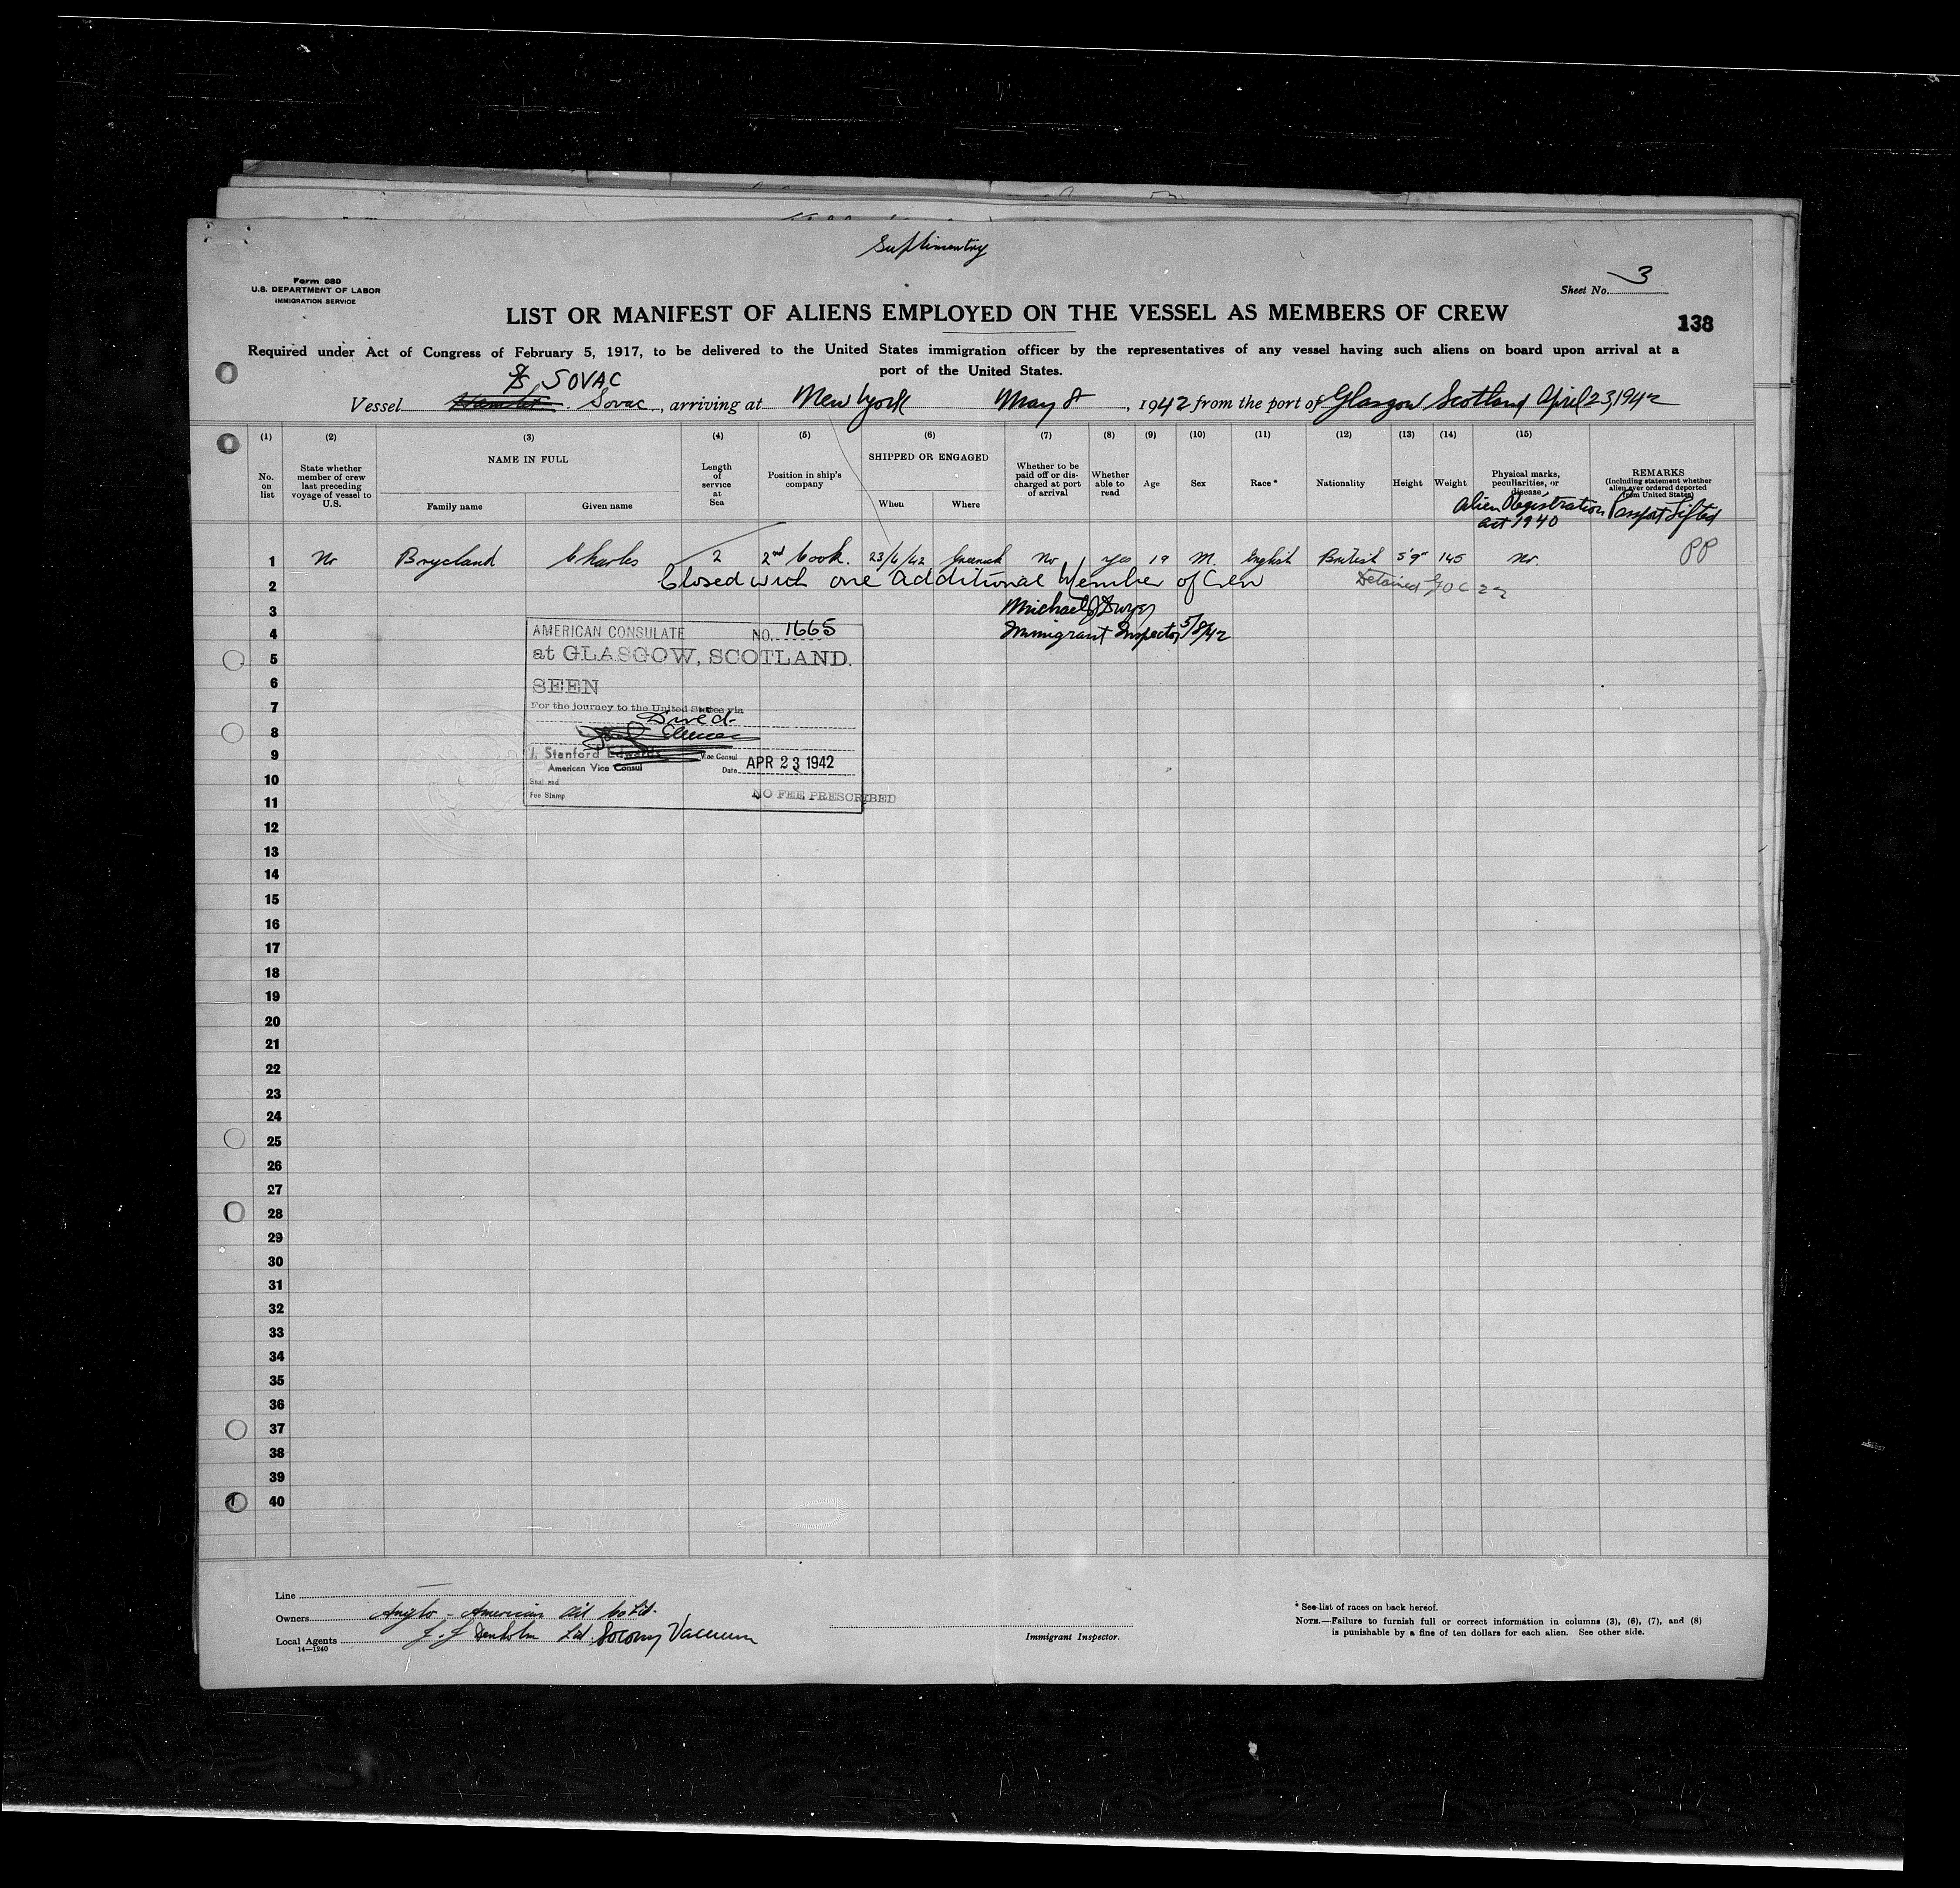 Suplimentry
Form 680
U.S. DEPARTMENT OF LABOR
IMMIGRATION SERVICE
Sheet No. 3
LIST OR MANIFEST OF ALIENS EMPLOYED ON THE VESSEL AS MEMBERS OF CREW
138
Required under Act of Congress of February 5, 1917, to be delivered to the United States immigration officer by the representatives of any vessel having such aliens on board upon arrival at a
port of the United States.
SOVAC
Vessel Sovac, arriving at New York May 8, 1942 from the port of Glasgow Scotland April 23, 1942
(1) (2) (3) (4) (5) (6) (7) (8) (9) (10) (11) (12) (13) (14) (15)
No. on list
State whether member of crew last preceding voyage of vessel to U.S.
NAME IN FULL
Family name Given name
Length of service at Sea
Position in ship's company
SHIPPED OR ENGAGED
When Where
Whether to be paid off or discharged at port of arrival
Whether able to read
Age
Sex
Race*
Nationality
Height
Weight
Physical marks, peculiarities, or disease
REMARKS
(Including statement whether alien ever ordered deported from United States)
Alien Registration Act 1940
Passport Lifted
1 No Charles 2 2nd Cook. 23/4/42 Greenock No Yes 19 M. English British 5'9" 145 No. PP
2 Closed with one additional Member of Crew Detained
3 Michael
4 Immigrant Inspector 5/8/42
AMERICAN CONSULATE NO. 1665
at GLASGOW, SCOTLAND.
SEEN
For the journey to the United States via
Direct
J. Stanford Edwards Vice Consul
American Vice Consul Date APR 23 1942
Seal and
Fee Stamp NO FEE PRESCRIBED
5
6
7
8
9
10
11
12
13
14
15
16
17
18
19
20
21
22
23
24
25
26
27
28
29
30
31
32
33
34
35
36
37
38
39
40
Line
Owners Anglo-American Oil Co Ltd.
Local Agents J. J. Denholm Ltd. Socony Vacuum
14—1240
Immigrant Inspector.
* See list of races on back hereof.
NOTE.—Failure to furnish full or correct information in columns (3), (6), (7), and (8)
is punishable by a fine of ten dollars for each alien. See other side.